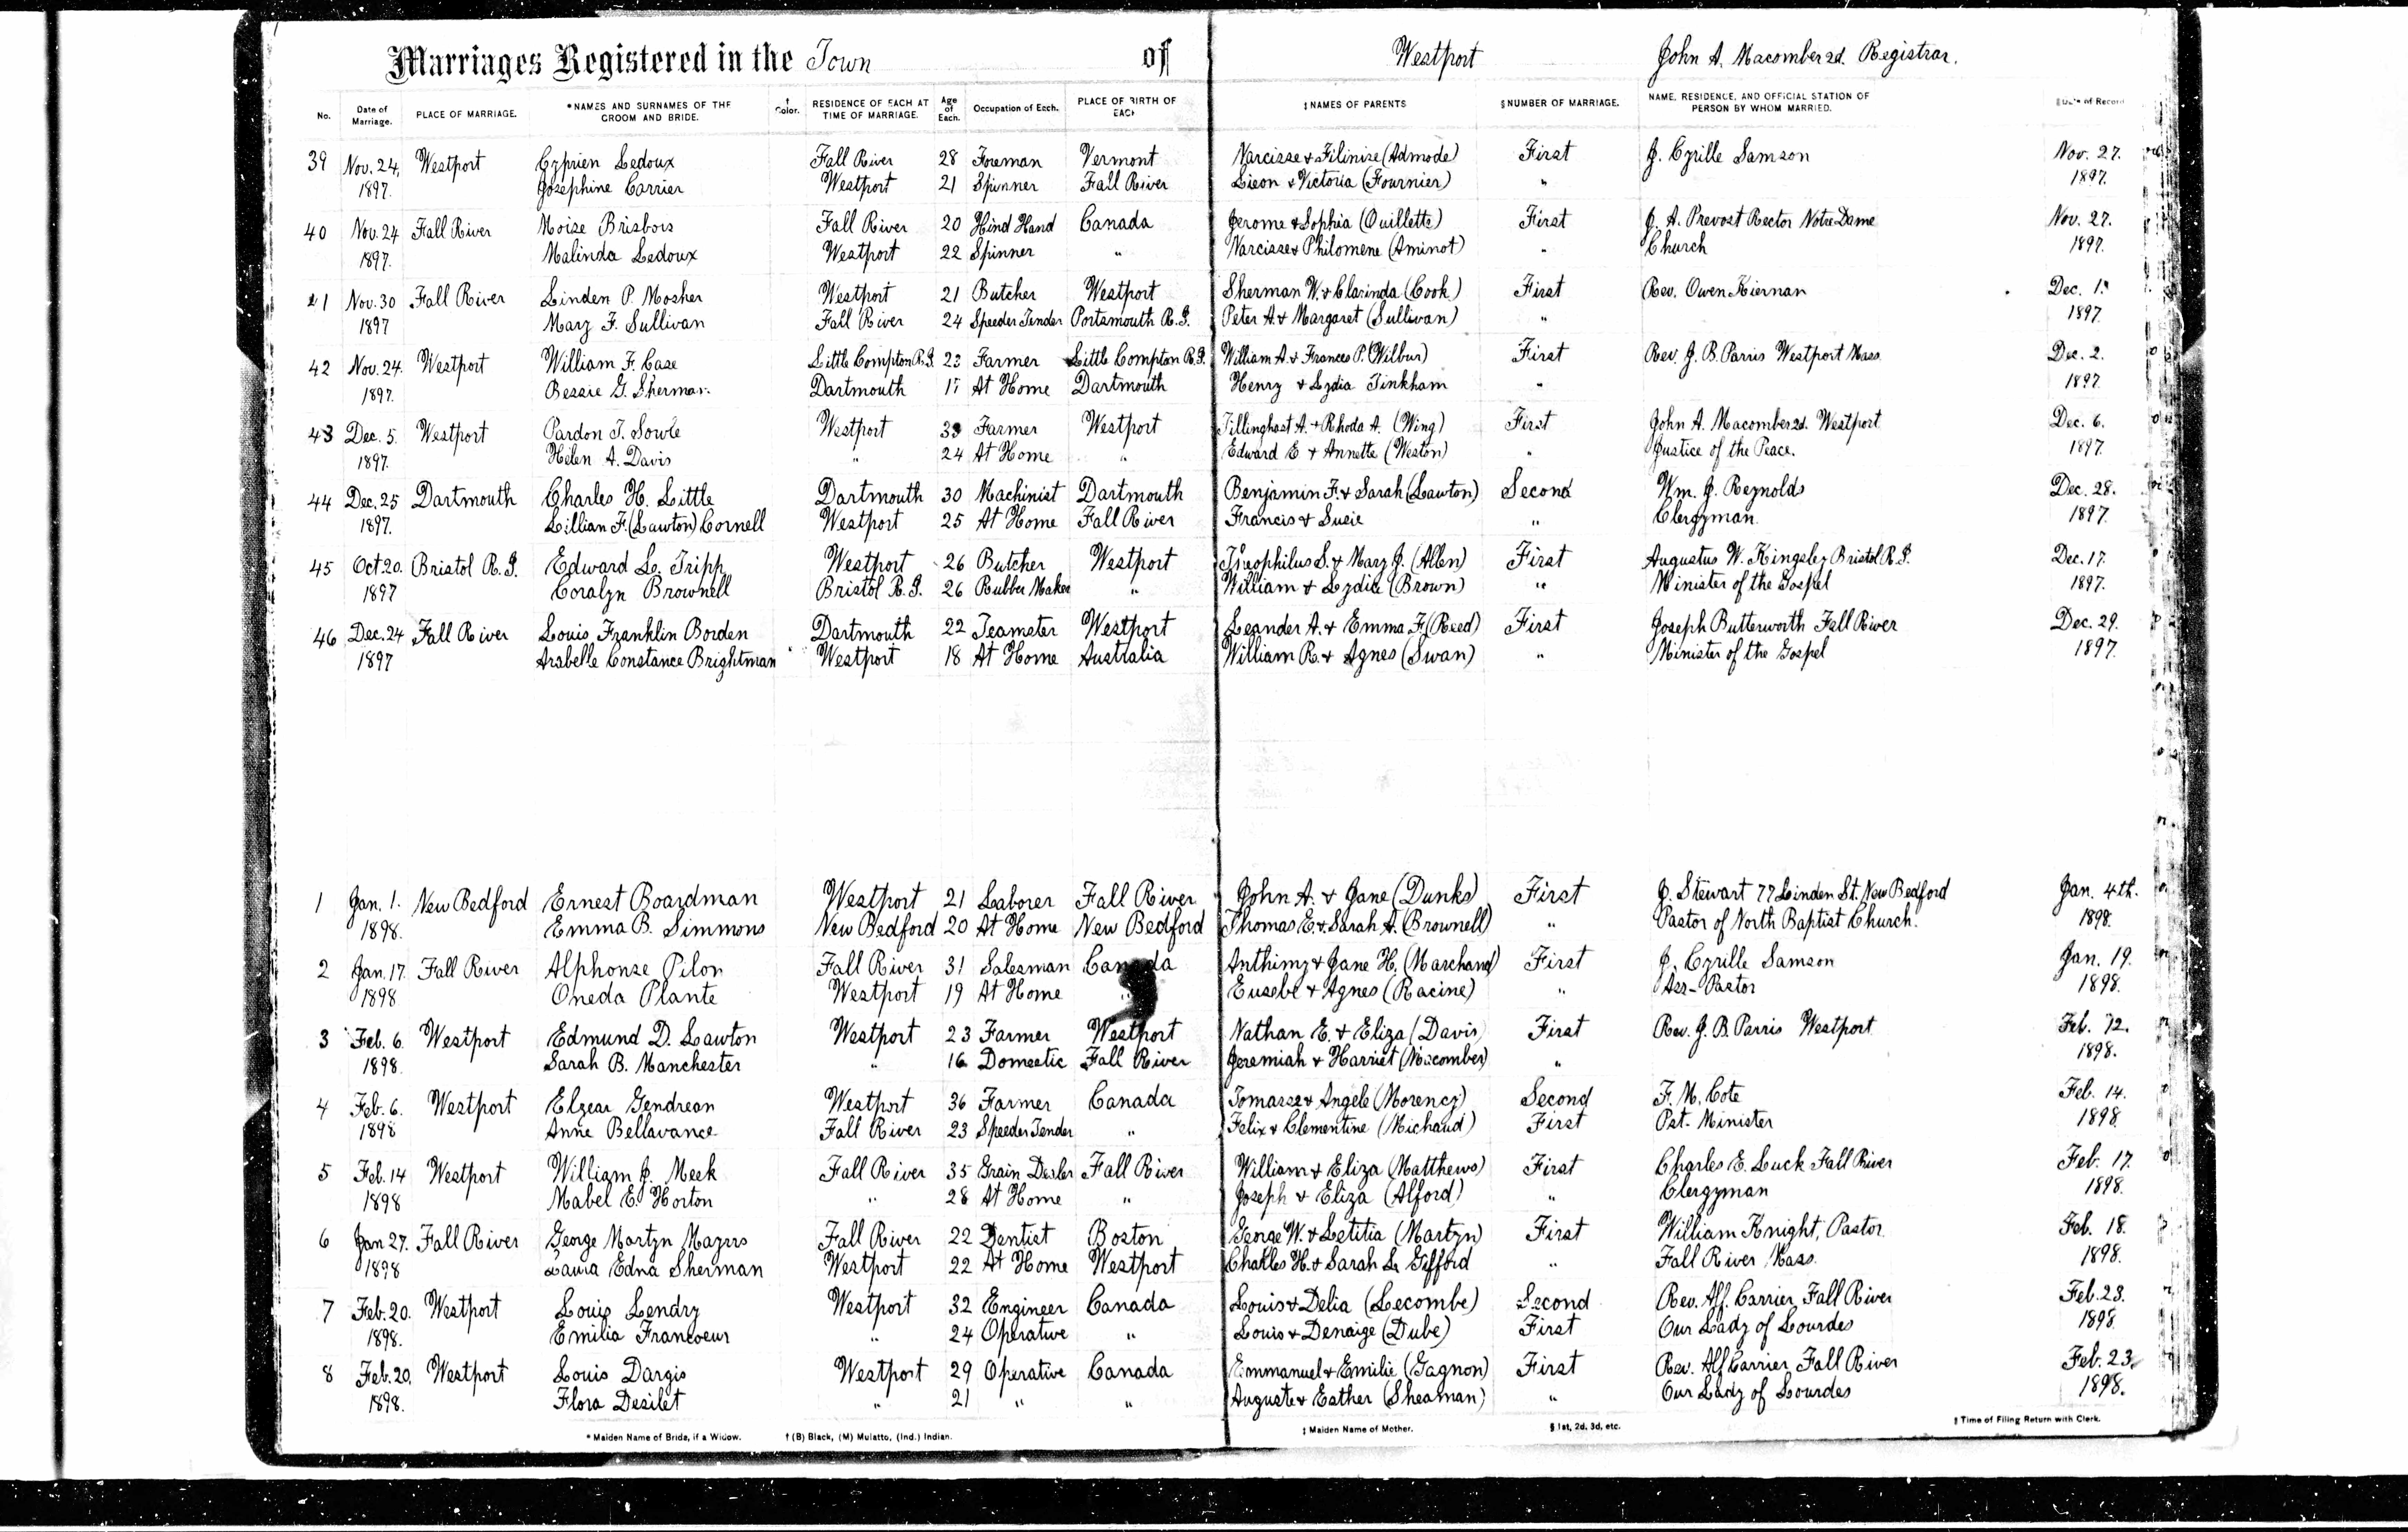 Marriages Registered in the Town of Westport John A. Macomber 2d. Registrar.
No. Date of Marriage. PLACE OF MARRIAGE. *NAMES AND SURNAMES OF THE GROOM AND BRIDE. †Color. RESIDENCE OF EACH AT TIME OF MARRIAGE. Age of Each. Occupation of Each. PLACE OF BIRTH OF EACH ‡NAMES OF PARENTS §NUMBER OF MARRIAGE. NAME, RESIDENCE, AND OFFICIAL STATION OF PERSON BY WHOM MARRIED. Date of Record
39 Nov. 24, Westport Cyprien Ledoux Fall River 28 Foreman Vermont Narcisse & Filinise (Admode) First J. Cyrille Samson Nov. 27.
1897. Josephine Carrier Westport 21 Spinner Fall River Lieon & Victoria (Fournier) " 1897.
40 Nov. 24 Fall River Moise Brisbois Fall River 20 Hind Hand Canada Jerome & Sophia (Ouillette) First J. A. Prevost Rector Notre Dame Nov. 27.
1897. Malinda Ledoux Westport 22 Spinner " Narcisse & Philomene (Aminot) " Church 1897.
41 Nov. 30 Fall River Linden P. Mosher Westport 21 Butcher Westport Sherman W. & Clarinda (Cook) First Rev. Owen Kiernan Dec. 1.
1897 Mary F. Sullivan Fall River 24 Speeder Tender Portsmouth R.I. Peter A. & Margaret (Sullivan) " 1897.
42 Nov. 24. Westport William F. Case Little Compton R.I. 23 Farmer Little Compton R.I. William A. & Frances P. (Wilbur) First Rev. J. B. Parris Westport Mass. Dec. 2.
1897. Bessie G. Sherman. Dartmouth 17 At Home Dartmouth Henry & Lydia Tinkham " 1897.
43 Dec. 5. Westport Pardon T. Sowle Westport Farmer Westport Tillinghast A. & Rhoda A. (Wing) First John A. Macomber 2d. Westport Dec. 6.
1897. Helen A. Davis " 24 At Home " Edward E & Annette (Weston) " Justice of the Peace. 1897.
44 Dec. 25 Dartmouth Charles H. Little Dartmouth 30 Machinist Dartmouth Benjamin F. & Sarah (Lawton) Second Wm. J. Reynolds Dec. 28.
1897. Lillian F. (Lawton) Cornell Westport 25 At Home Fall River Francis & Susie " Clergyman. 1897.
45 Oct 20. Bristol R.I. Edward L. Tripp Westport 26 Butcher Westport Theophilus S. & Mary J. (Allen) First Augustus W. Kingsley Bristol R.I. Dec. 17.
1897 Coralyn Brownell Bristol R.I. 26 Rubber Maker " William & Lydia (Brown) " Minister of the Gospel 1897.
46 Dec. 24 Fall River Louis Franklin Borden Dartmouth 22 Teamster Westport Leander A. & Emma F. (Reed) First Joseph Butterworth Fall River Dec. 29.
1897 Arabelle Constance Brightman Westport 18 At Home Australia William R. & Agnes (Swan) " Minister of the Gospel 1897.
1 Jan. 1. New Bedford Ernest Boardman Westport 21 Laborer Fall River John A. & Jane (Dunks) First J. Stewart 77 Linden St. New Bedford Jan. 4th.
1898. Emma B. Simmons New Bedford 20 At Home New Bedford Thomas E. & Sarah A. (Brownell) " Pastor of North Baptist Church. 1898.
2 Jan. 17. Fall River Alphonse Pilon Fall River 31 Salesman Canada Anthimy & Jane H. (Marchand) First J. Cyrille Samson Jan. 19.
1898 Oneda Plante Westport 19 At Home " Eusebe & Agnes (Racine) " Ass-Pastor 1898.
3 Feb. 6. Westport Edmund D. Lawton Westport 23 Farmer Westport Nathan E. & Eliza (Davis) First Rev. J. B. Parris Westport Feb. 12.
1898. Sarah B. Manchester " 16 Domestic Fall River Jeremiah & Harriet (Macomber) " 1898.
4 Feb. 6. Westport Elzear Gendreau Westport 36 Farmer Canada Tomasse & Angele (Morency) Second F. M. Cote Feb. 14.
1898 Anne Bellavance Fall River 23 Speeder Tender " Felix & Clementine (Michaud) First Pst. Minister 1898.
5 Feb. 14 Westport William J. Meek Fall River 35 Grain Dealer Fall River William & Eliza (Matthews) First Charles E. Luck Fall River Feb. 17.
1898 Mabel E. Horton " 28 At Home " Joseph & Eliza (Alford) " Clergyman 1898.
6 Jan 27. Fall River George Martyn Fall River 22 Dentist Boston George W. & Letitia (Martyn) First William Knight, Pastor. Feb. 18.
1898 Laura Edna Sherman Westport 22 At Home Westport Charles H. & Sarah L. Gifford " Fall River Mass. 1898.
7 Feb. 20. Westport Louis Lendry Westport 32 Engineer Canada Louis & Delia (Lecombe) Second Rev. Alf. Carrier Fall River Feb. 23.
1898. Emilia Francoeur " 24 Operative " Louis & Denaige (Dube) First Our Lady of Lourdes 1898.
8 Feb. 20. Westport Louis Dargis Westport 29 Operative Canada Emmanuel & Emilie (Gagnon) First Rev. Alf Carrier Fall River Feb. 23.
1898. Flora Desilet " 21 " " Auguste & Esther (Sheaman) " Our Lady of Lourdes 1898.
*Maiden Name of Bride, if a Widow. †(B) Black, (M) Mulatto, (Ind.) Indian. ‡Maiden Name of Mother. §1st, 2d, 3d, etc. ‖Time of Filing Return with Clerk.